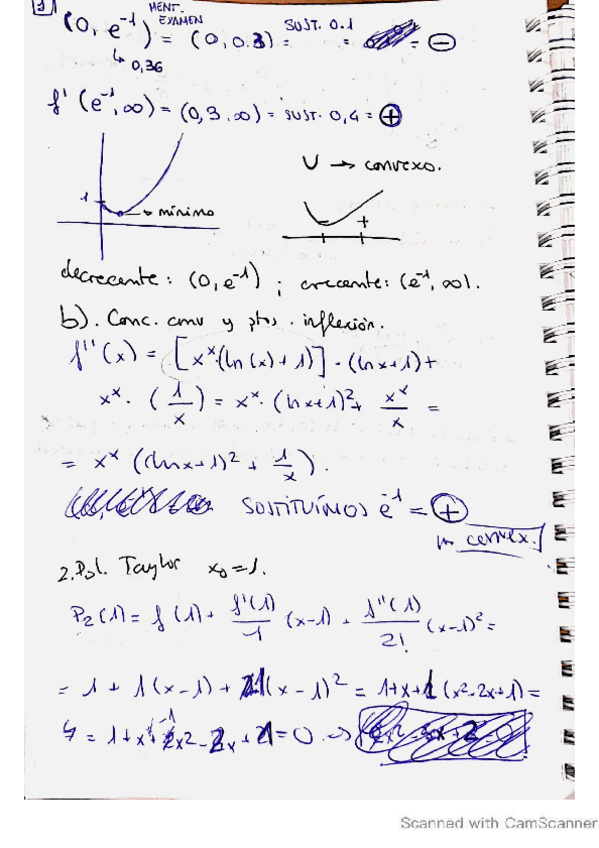 3)
(0, e⁻¹) MENT. EXAMEN = (0, 0.3) = SUST. 0.1 = = ⊖
↳ 0,36
f' (e⁻¹, ∞) = (0,3, ∞) = SUST. 0,4 = ⊕
1
→ mínimo
U → convexo.
+
decrecente: (0, e⁻¹) ; crecente: (e⁻¹, ∞).
b). Conc. conv y ptos. inflexión.
f''(x) = [xˣ·(ln(x)+1)]·(lnx+1)+
xˣ·(1/x) = xˣ·(lnx+1)²+ xˣ/x =
= xˣ((lnx+1)² + 1/x).
SUSTITUÍMOS e⁻¹ = ⊕
↳ convex.
2. Pol. Taylor x₀=1.
P₂(1) = f(1) + f'(1)/1 (x-1) + f''(1)/2! (x-1)² =
= 1 + 1(x-1) + 1(x-1)² = 1+x+1(x²-2x+1) =